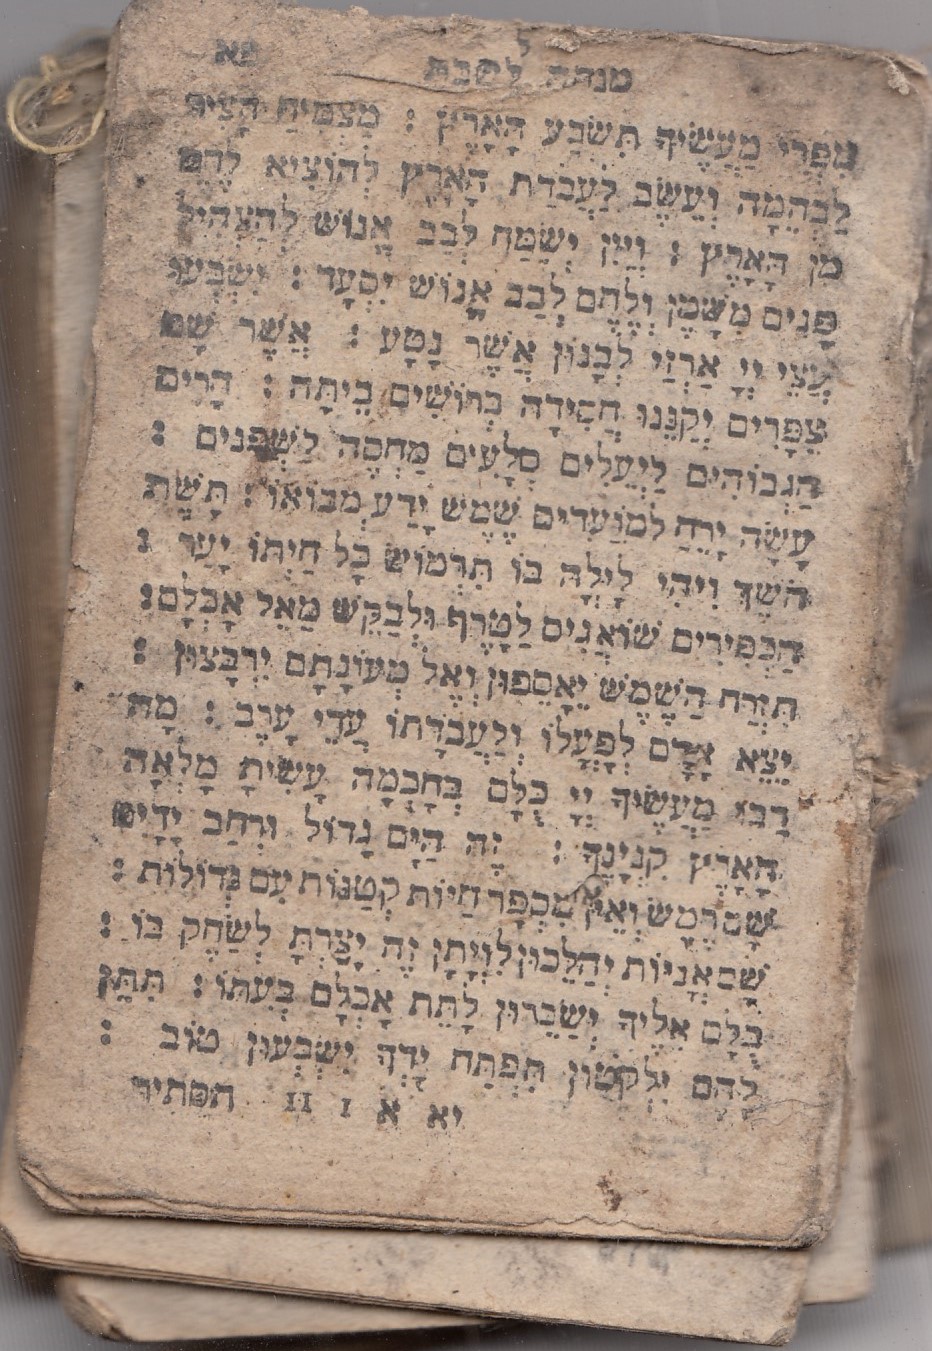 מנחה לשבת פא
מִפְּרִי מַעֲשֶׂיךָ תִּשְׂבַּע הָאָרֶץ : מַצְמִיחַ חָצִיר
לַבְּהֵמָה וְעֵשֶׂב לַעֲבֹדַת הָאָדָם לְהוֹצִיא לֶחֶם
מִן הָאָרֶץ : וְיַיִן יְשַׂמַּח לְבַב אֱנוֹשׁ לְהַצְהִיל
פָּנִים מִשָּׁמֶן וְלֶחֶם לְבַב אֱנוֹשׁ יִסְעָד : יִשְׂבְּעוּ
עֲצֵי יְיָ אַרְזֵי לְבָנוֹן אֲשֶׁר נָטָע : אֲשֶׁר שָׁם
צִפֳּרִים יְקַנֵּנוּ חֲסִידָה בְּרוֹשִׁים בֵּיתָהּ : הָרִים
הַגְּבוֹהִים לַיְּעֵלִים סְלָעִים מַחְסֶה לַשְׁפַנִּים :
עָשָׂה יָרֵחַ לְמוֹעֲדִים שֶׁמֶשׁ יָדַע מְבוֹאוֹ : תָּשֶׁת
חֹשֶׁךְ וִיהִי לָיְלָה בּוֹ תִרְמוֹשׂ כָּל חַיְתוֹ יָעַר :
הַכְּפִירִים שׁוֹאֲגִים לַטָּרֶף וּלְבַקֵּשׁ מֵאֵל אָכְלָם :
תִּזְרַח הַשֶּׁמֶשׁ יֵאָסֵפוּן וְאֶל מְעוֹנָתָם יִרְבָּצוּן :
יֵצֵא אָדָם לְפָעֳלוֹ וְלַעֲבֹדָתוֹ עֲדֵי עָרֶב : מָה
רַבּוּ מַעֲשֶׂיךָ יְיָ כֻּלָּם בְּחָכְמָה עָשִׂיתָ מָלְאָה
הָאָרֶץ קִנְיָנֶךָ : זֶה הַיָּם גָּדוֹל וּרְחַב יָדָיִם
שָׁם רֶמֶשׂ וְאֵין מִסְפָּר חַיּוֹת קְטַנּוֹת עִם גְּדוֹלוֹת :
שָׁם אֳנִיּוֹת יְהַלֵּכוּן לִוְיָתָן זֶה יָצַרְתָּ לְשַׂחֶק בּוֹ :
כֻּלָּם אֵלֶיךָ יְשַׂבֵּרוּן לָתֵת אָכְלָם בְּעִתּוֹ : תִּתֵּן
לָהֶם יִלְקֹטוּן תִּפְתַּח יָדְךָ יִשְׂבְּעוּן טוֹב :
יא א I II תסתיר